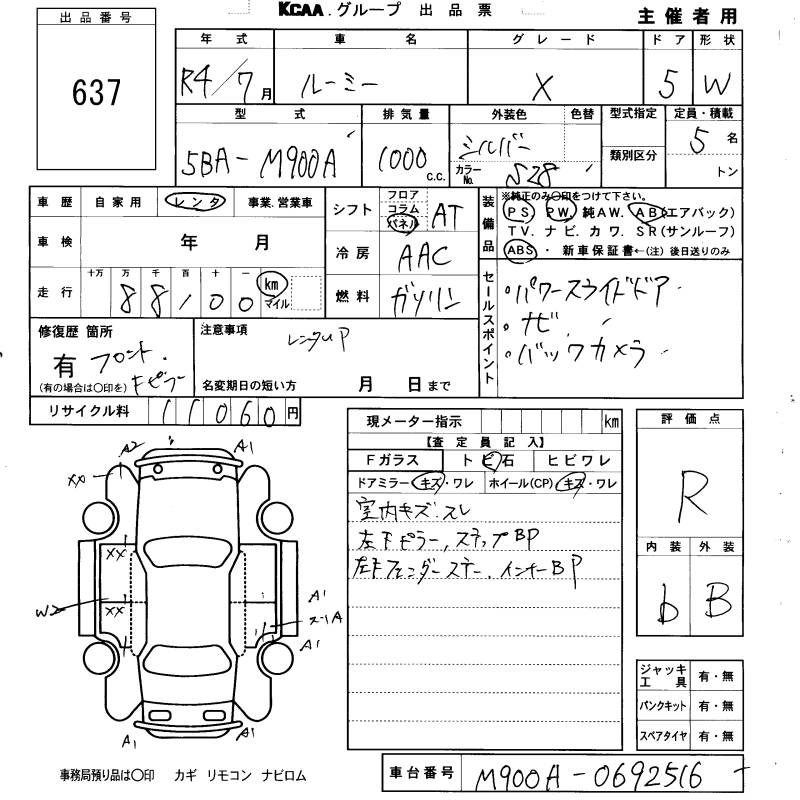 KCAA.グループ 出品票
主催者用
出品番号
637
年式 車名 グレード ドア 形状
R4/7月 ルーミー X 5 W
型式 排気量 外装色 色替 型式指定 定員・積載
5BA-M900A 1000 c.c. シルバー カラーNo. S28 類別区分 5名
トン
車歴 自家用 レンタ 事業.営業車
車検 年 月
走行 十万 万 千 百 十 一 km マイル
88100
シフト フロア コラム パネル AT
冷房 AAC
燃料 ガソリン
装備品 ※純正のみ○印をつけて下さい。
PS PW. 純AW. AB(エアバック)
TV. ナビ. カワ. SR(サンルーフ)
ABS ・ 新車保証書←(注) 後日送りのみ
セールスポイント
・パワースライドドア
・ナビ
・バックカメラ
修復歴 箇所
有 フロント.
(有の場合は○印を) キピラー
注意事項
レンタUP
名変期日の短い方 月 日まで
リサイクル料 11060円
現メーター指示 km
【査定員記入】
Fガラス ト ビ 石 ヒビワレ
ドアミラー キズ・ワレ ホイール(CP) キズ・ワレ
室内キズ.スレ
左Fピラー,ステップBP
左Fフェンダーステー.インナーBP
評価点
R
内装 外装
b B
ジャッキ工具 有・無
パンクキット 有・無
スペアタイヤ 有・無
A2 A1
XX
XX
W2 XX
A1
A1
A1 A1
事務局預り品は○印 カギ リモコン ナビロム
車台番号 M900A-0692516